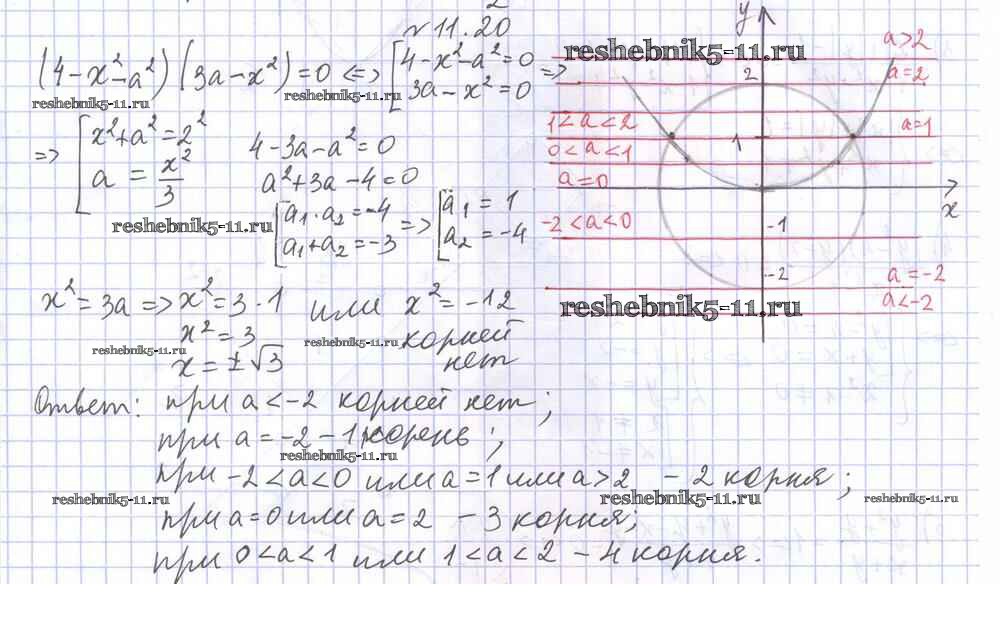 № 11.20
(4-x²-a²)(3a-x²)=0 <=> [4-x²-a²=0 =>
3a-x²=0
=> [x²+a²=2²
a = x²/3
4-3a-a²=0
a²+3a-4=0
[a₁·a₂=-4
a₁+a₂=-3
=> [a₁ = 1
a₂ = -4
x²=3a => x²=3·1 или x²=-12
x²=3 корней
x=±√3 нет
Ответ: при a<-2 корней нет;
при a=-2 - 1 корень;
при -2<a<0 или a=1 или a>2 - 2 корня;
при a=0 или a=2 - 3 корня;
при 0<a<1 или 1<a<2 - 4 корня.
y
a>2
2
a=2
1<a<2
1
a=1
0<a<1
a=0
x
-2<a<0
-1
-2
a=-2
a<-2
reshebnik5-11.ru
reshebnik5-11.ru
reshebnik5-11.ru
reshebnik5-11.ru
reshebnik5-11.ru
reshebnik5-11.ru
reshebnik5-11.ru
reshebnik5-11.ru
reshebnik5-11.ru
reshebnik5-11.ru
reshebnik5-11.ru